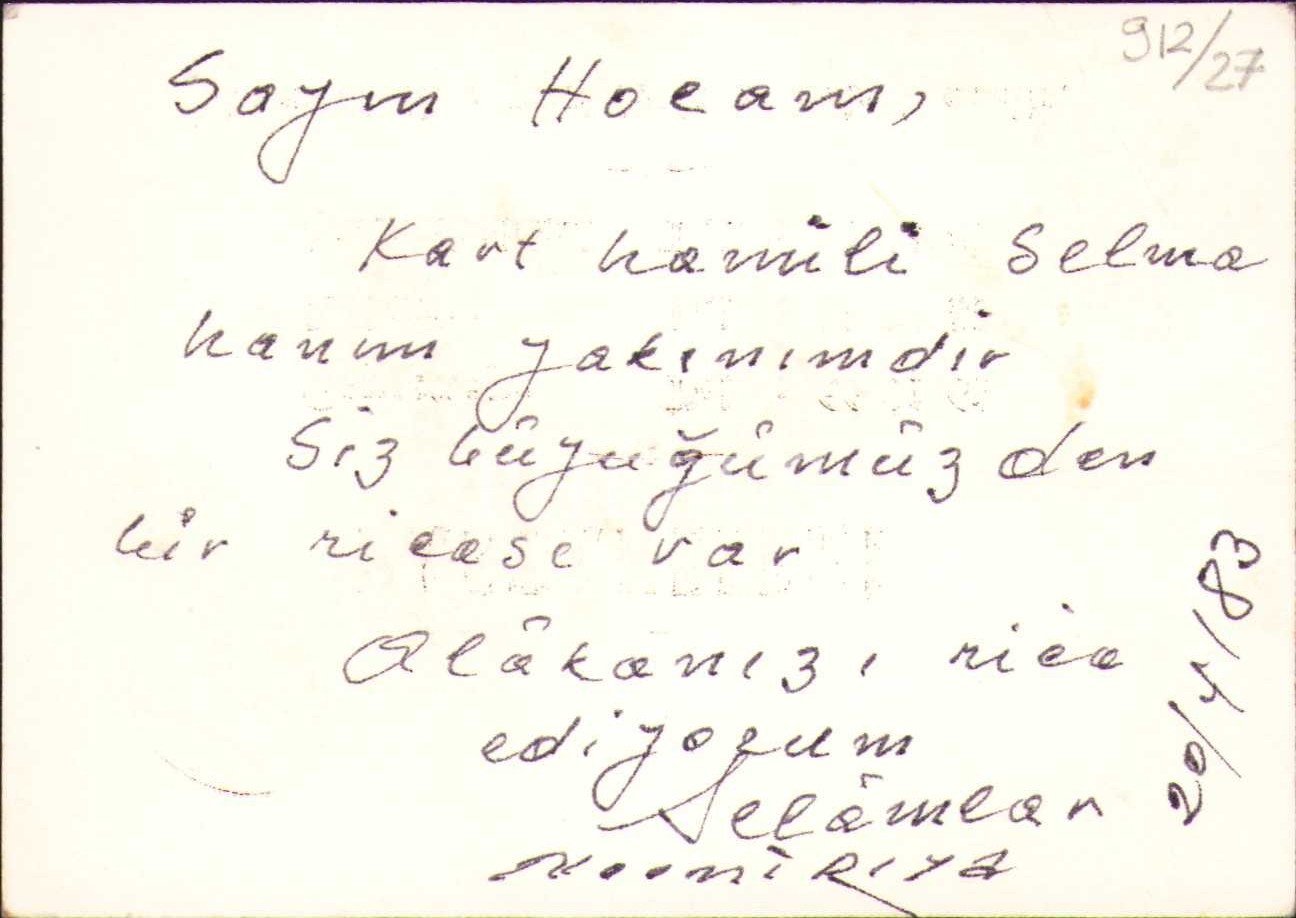 912/27
Sayın Hocam,
Kart hamili Selma
hanım yakınımdır
Siz büyuğümüzden
bir ricası var
Alâkanızı rica
ediyorum
Selâmlar
20/4/83